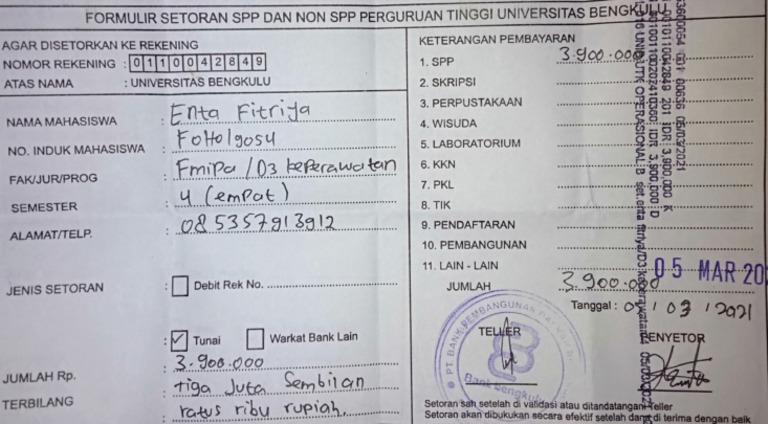 FORMULIR SETORAN SPP DAN NON SPP PERGURUAN TINGGI UNIVERSITAS BENGKULU
AGAR DISETORKAN KE REKENING
NOMOR REKENING : 0110042849
ATAS NAMA : UNIVERSITAS BENGKULU
NAMA MAHASISWA : Enta Fitriya
NO. INDUK MAHASISWA : FoHo1gosu
FAK/JUR/PROG : Fmipa / D3 keperawatan
SEMESTER : 4 (empat)
ALAMAT/TELP. : 085357913912
JENIS SETORAN : Debit Rek No.
: Tunai Warkat Bank Lain
JUMLAH Rp. : 3.900.000
TERBILANG : tiga Juta Sembilan
ratus ribu rupiah
KETERANGAN PEMBAYARAN
1. SPP 3.900.000
2. SKRIPSI
3. PERPUSTAKAAN
4. WISUDA
5. LABORATORIUM
6. KKN
7. PKL
8. TIK
9. PENDAFTARAN
10. PEMBANGUNAN
11. LAIN - LAIN
JUMLAH 3.900.000
05 MAR 20
Tanggal : / 03 / 2021
TELLER
PENYETOR
PT. BANK PEMBANGUNAN
Bank Bengkulu
Setoran sah setelah di validasi atau ditandatangani Teller
Setoran akan dibukukan secara efektif setelah dana di terima dengan baik
05/03/2021
IDR 3,900,000 K
IDR 3,900,000 D
OPERASIONAL B